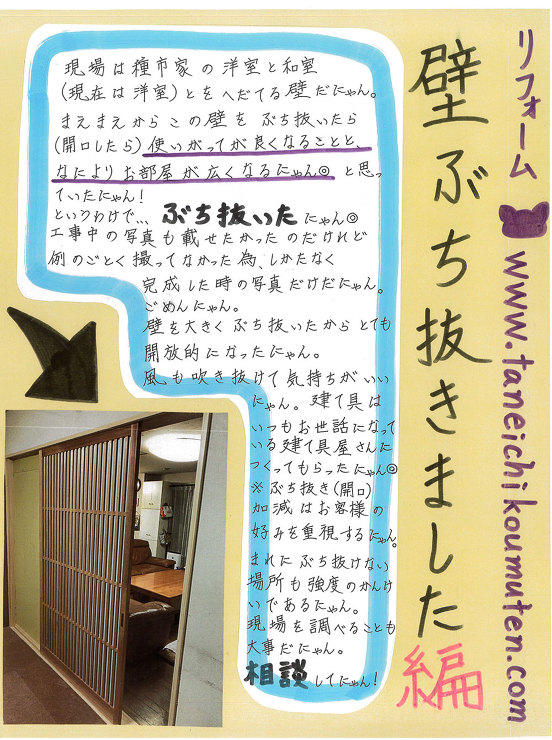 リフォーム www.taneichikoumuten.com
壁ぶち抜きました編
現場は種市家の洋室と和室
(現在は洋室)とをへだてる壁だにゃん。
まえまえからこの壁をぶち抜いたら
(開口したら)使いがってが良くなることと、
なによりお部屋が広くなるにゃん◎と思っ
ていたにゃん!
というわけで…ぶち抜いたにゃん◎
工事中の写真も載せたかったのだけれど
例のごとく撮ってなかった為、しかたなく
完成した時の写真だけだにゃん。
ごめんにゃん。
壁を大きくぶち抜いたからとても
開放的になったにゃん。
風も吹き抜けて気持ちがいい
にゃん。建て具は
いつもお世話になって
いる建て具屋さんに
つくってもらったにゃん◎
※ぶち抜き(開口)
加減はお客様の
好みを重視するにゃん。
まれにぶち抜けない
場所も強度のかんけ
いであるにゃん。
現場を調べることも
大事だにゃん。
相談してにゃん!